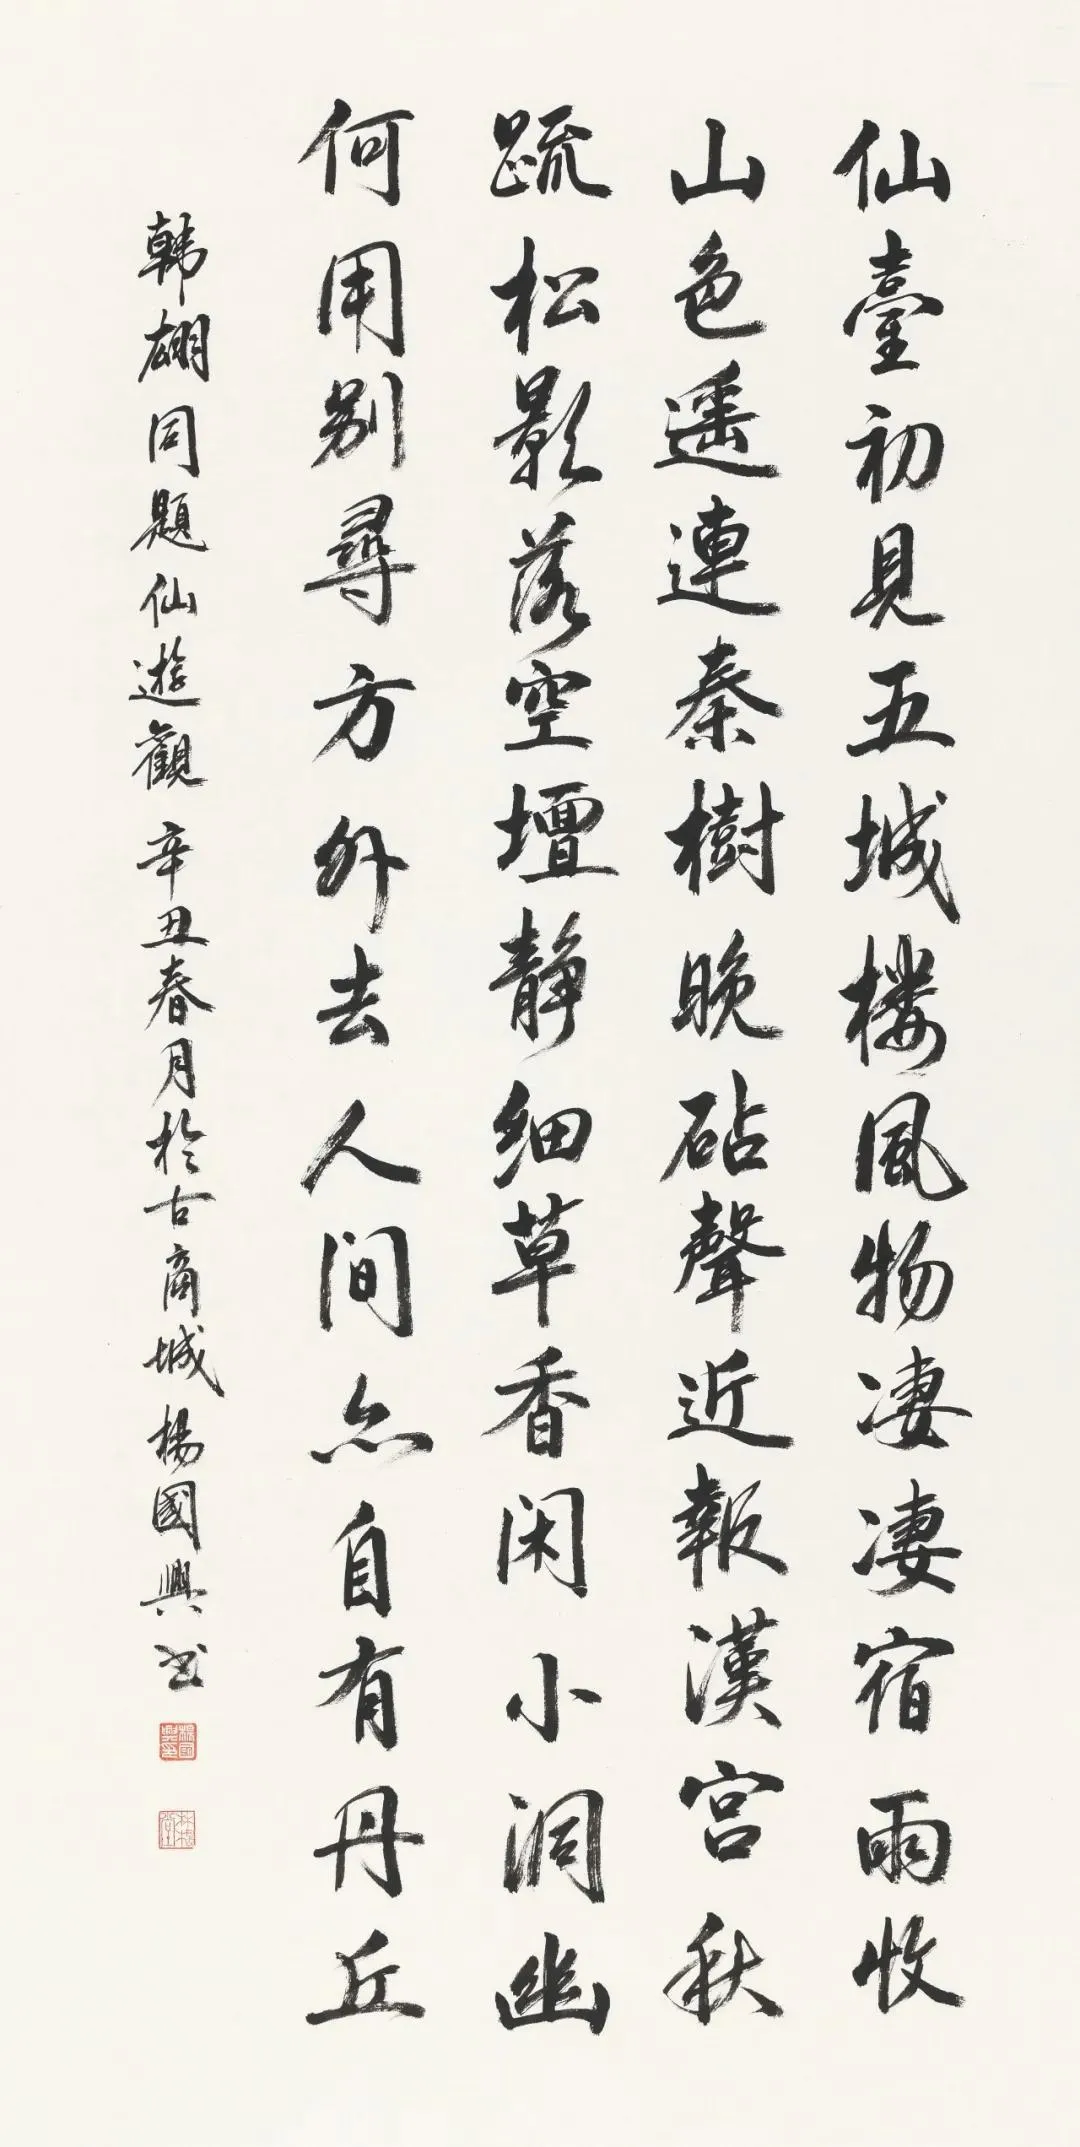 仙臺初見五城楼風物淒淒宿雨收
山色遥連秦樹晚砧聲近報漢宫秋
疏松影落空壇静细草香闲小洞幽
何用别尋方外去人间亦自有丹丘
韩翃同題仙遊觀辛丑春月於古商城楊國興书